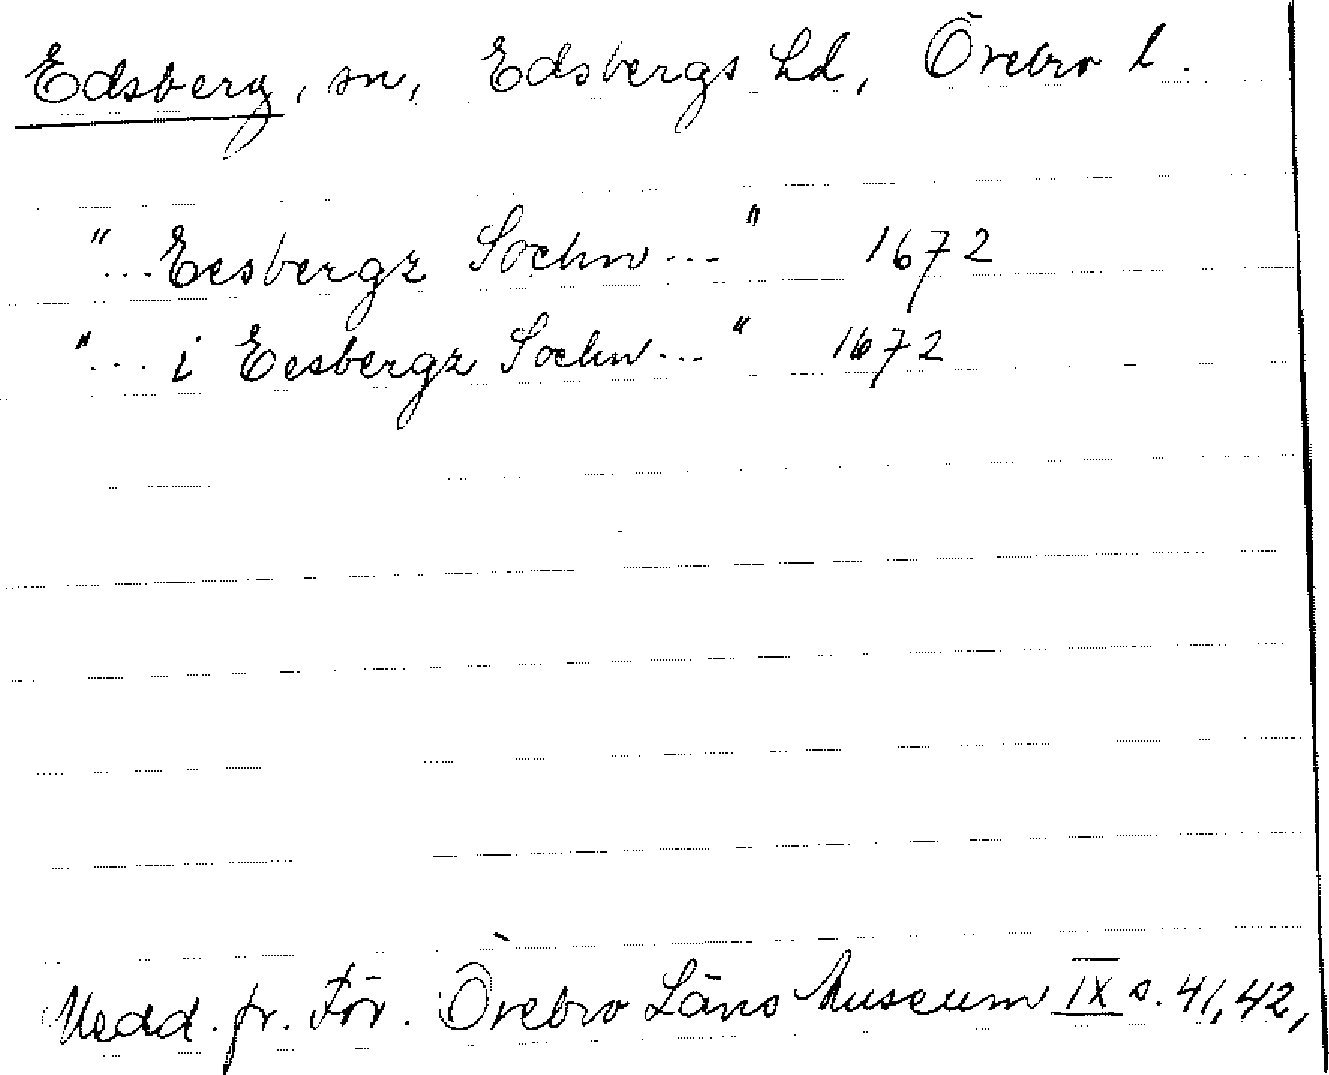 Edsberg, sn, Edsbergs hd, Örebro l.
"... Eesbergz Sochn ..." 1672
"... i Eesbergz Sochn ..." 1672
Medd. fr. För. Örebro Läns Museum IX s. 41, 42,